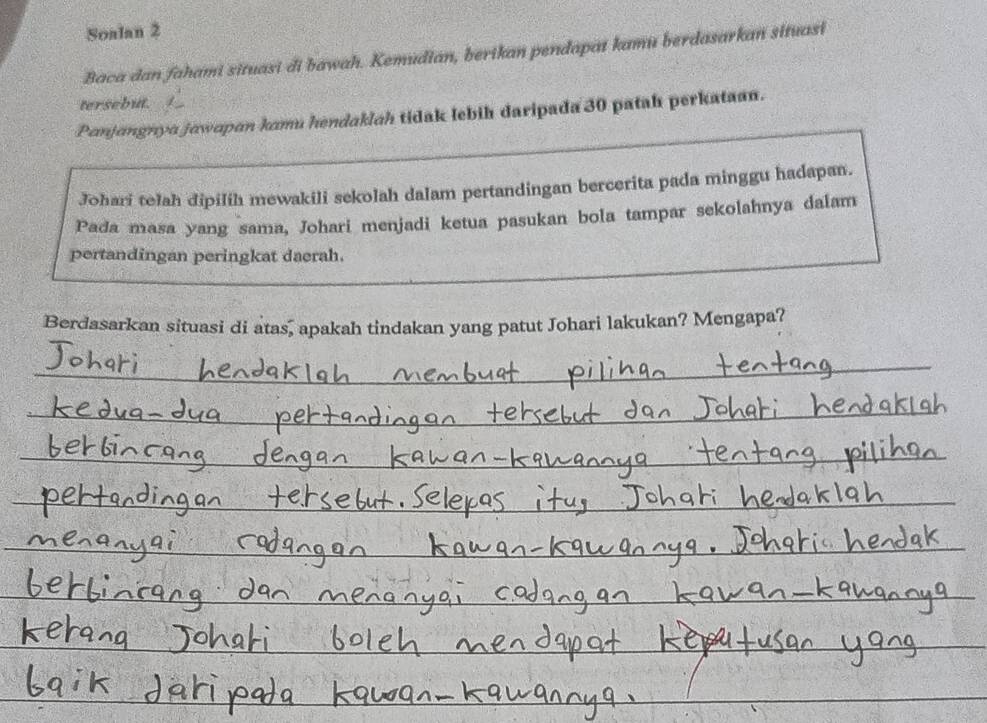 Soalan 2
Baca dan fahami situasi di bawah. Kemudian, berikan pendapat kamu berdasarkan situasi
tersebut.
Panjangnya jawapan kamu hendaklah tidak lebih daripada 30 patah perkataan.
Johari telah dipilih mewakili sekolah dalam pertandingan bercerita pada minggu hadapan.
Pada masa yang sama, Johari menjadi ketua pasukan bola tampar sekolahnya dalam
pertandingan peringkat daerah.
Berdasarkan situasi di atas, apakah tindakan yang patut Johari lakukan? Mengapa?
Johari hendaklah membuat pilihan tentang
kedua-dua pertandingan tersebut dan Johari hendaklah
berbincang dengan kawan-kawannya tentang pilihan
pertandingan tersebut. Selepas itu, Johari hendaklah
menanyai cadangan kawan-kawannya. Johari hendak
berbincang dan menanyai cadangan kawan-kawannya
kerang Johari boleh mendapat keputusan yang
baik daripada kawan-kawannya.